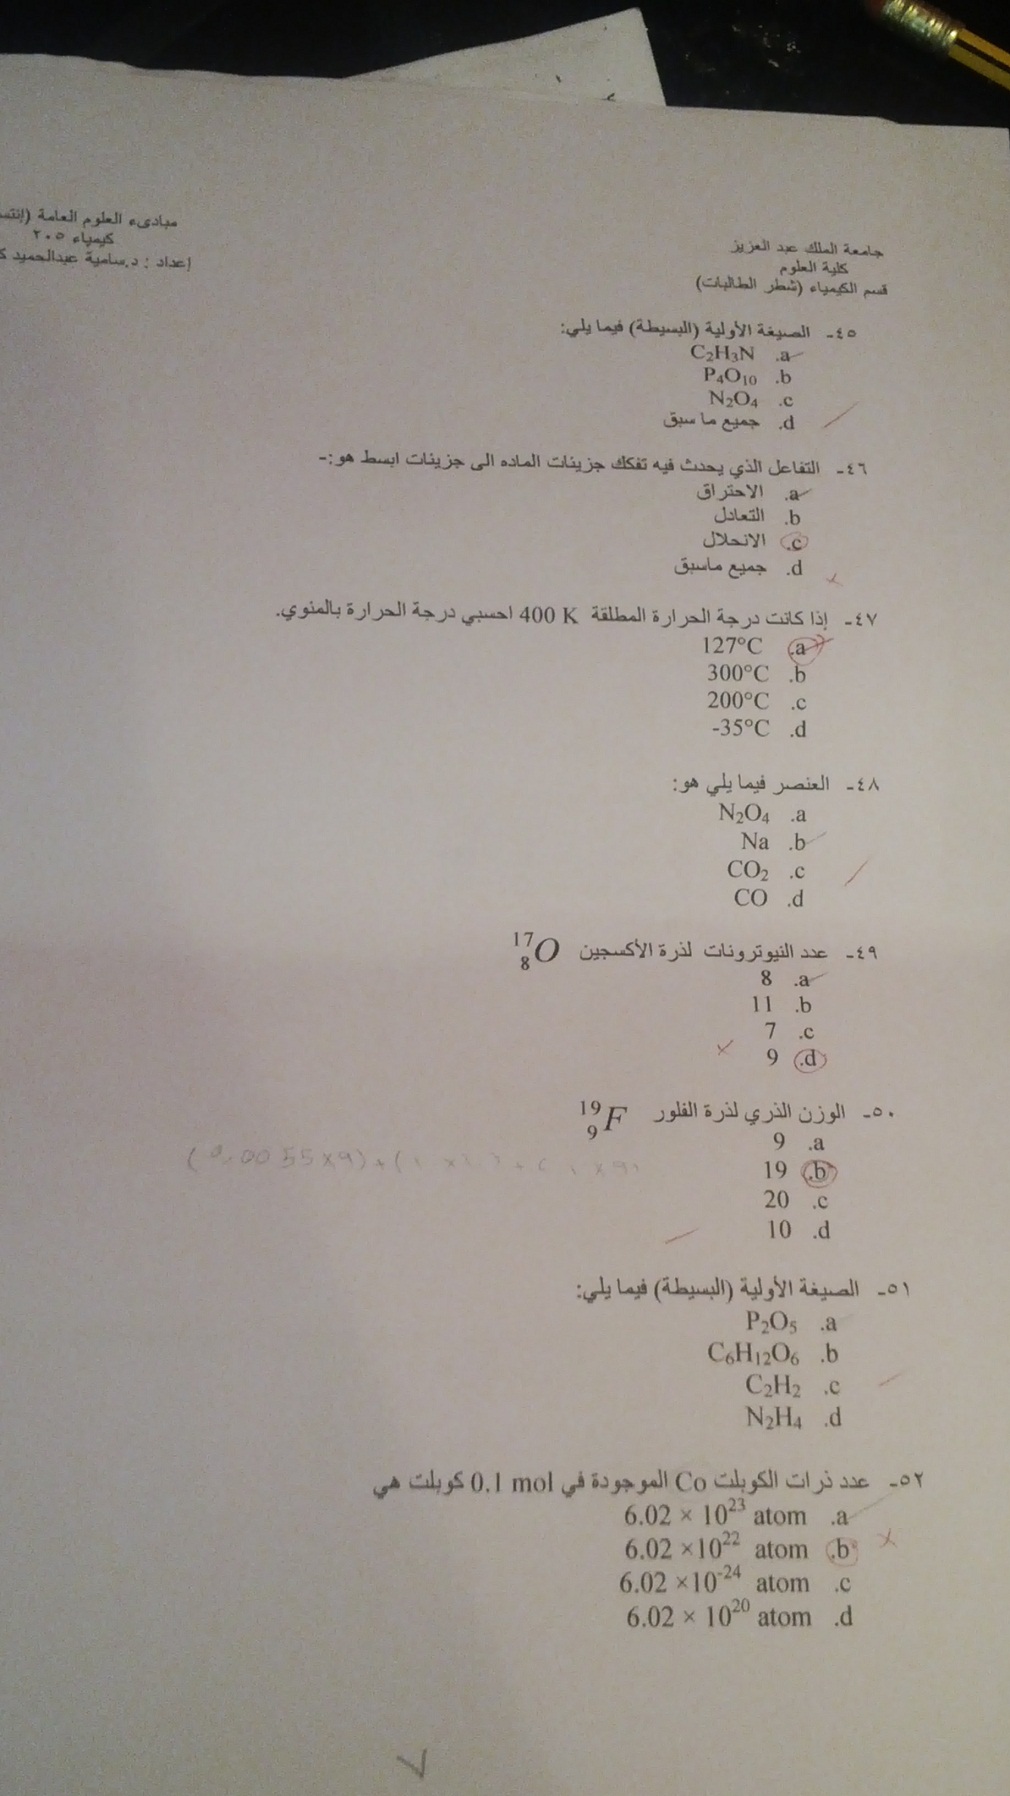 جامعة الملك عبد العزيز
كلية العلوم
قسم الكيمياء (شطر الطالبات)
مبادىء العلوم العامة
كيمياء ٢٠٥
إعداد : د.سامية عبدالحميد
٤٥- الصيغة الأولية (البسيطة) فيما يلي:
a. C₂H₃N
b. P₄O₁₀
c. N₂O₄
d. جميع ما سبق
٤٦- التفاعل الذي يحدث فيه تفكك جزيئات الماده الى جزيئات ابسط هو:-
a. الاحتراق
b. التعادل
c. الانحلال
d. جميع ماسبق
٤٧- إذا كانت درجة الحرارة المطلقة 400 K احسبي درجة الحرارة بالمئوي.
a. 127°C
b. 300°C
c. 200°C
d. -35°C
٤٨- العنصر فيما يلي هو:
a. N₂O₄
b. Na
c. CO₂
d. CO
٤٩- عدد النيوترونات لذرة الأكسجين ¹⁷₈O
a. 8
b. 11
c. 7
d. 9
٥٠- الوزن الذري لذرة الفلور ¹⁹₉F
a. 9
b. 19
c. 20
d. 10
٥١- الصيغة الأولية (البسيطة) فيما يلي:
a. P₂O₅
b. C₆H₁₂O₆
c. C₂H₂
d. N₂H₄
٥٢- عدد ذرات الكوبلت Co الموجودة في 0.1 mol كوبلت هي
a. 6.02 × 10²³ atom
b. 6.02 ×10²² atom
c. 6.02 ×10⁻²⁴ atom
d. 6.02 × 10²⁰ atom